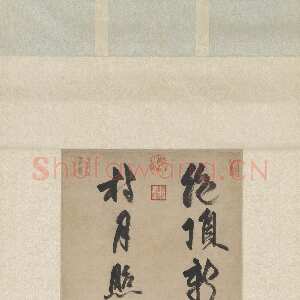 絕頂新
村月照
Shufawang.CN